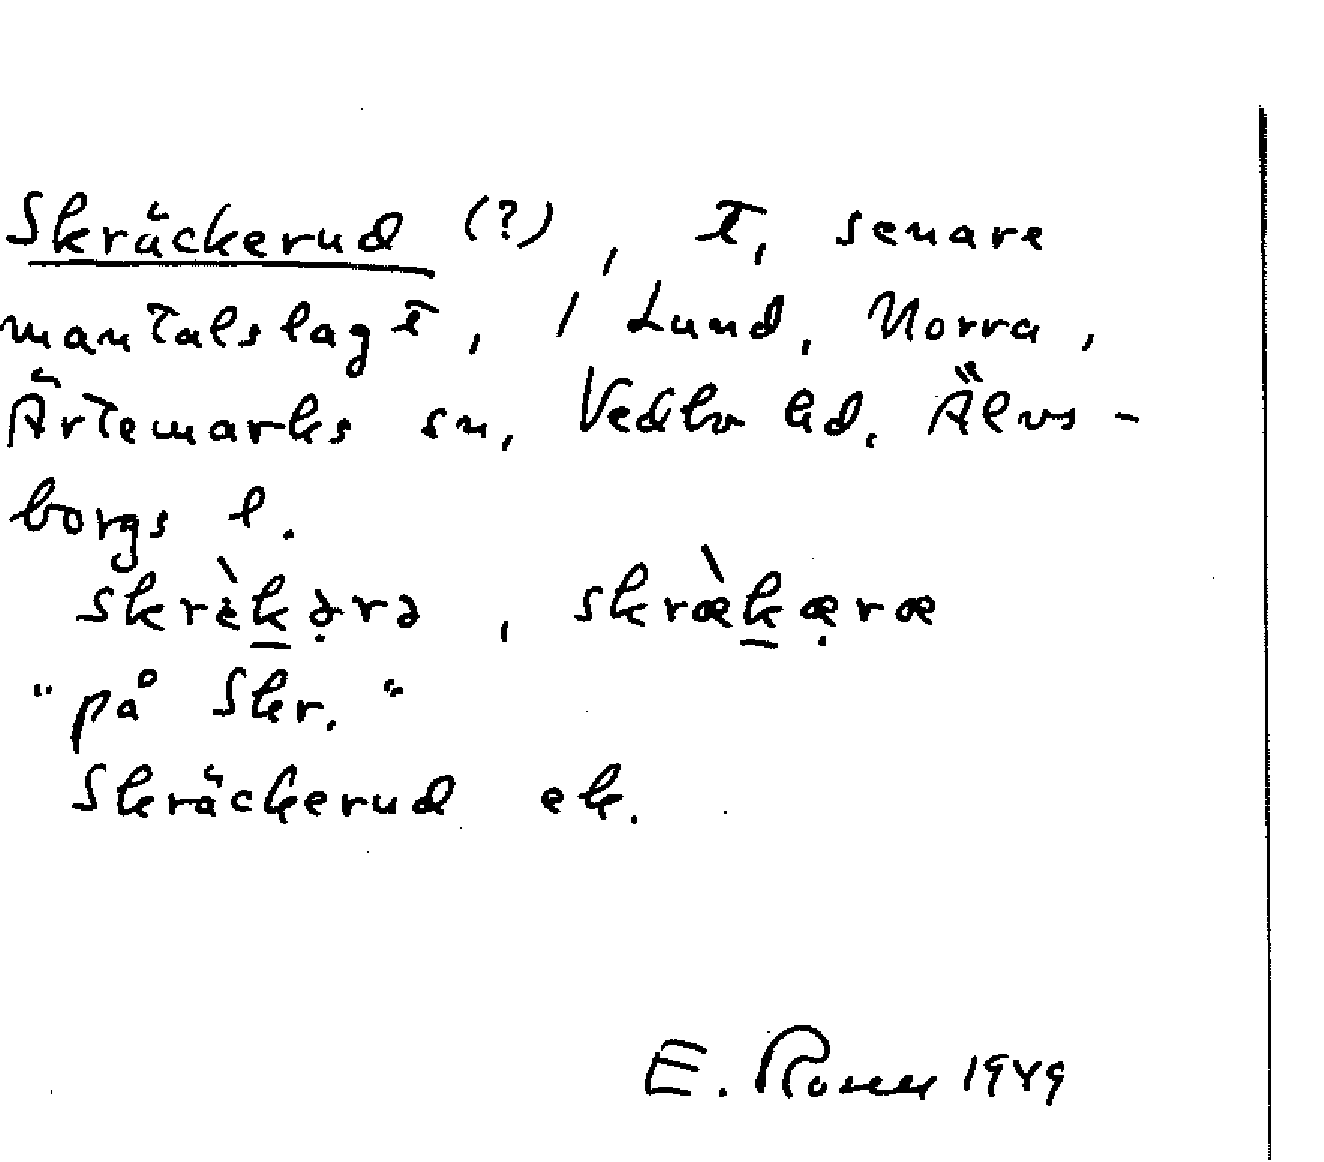 Skräckerud (?), T, senare
mantalslagt, / Lund, Norra,
Ärtemarks sn, Vedbo hd, Älvs-
borgs l.
skrὲkə̣rə, skræ̀kæ̣ræ
"på Skr."
Skräckerud ek.
E. 1949